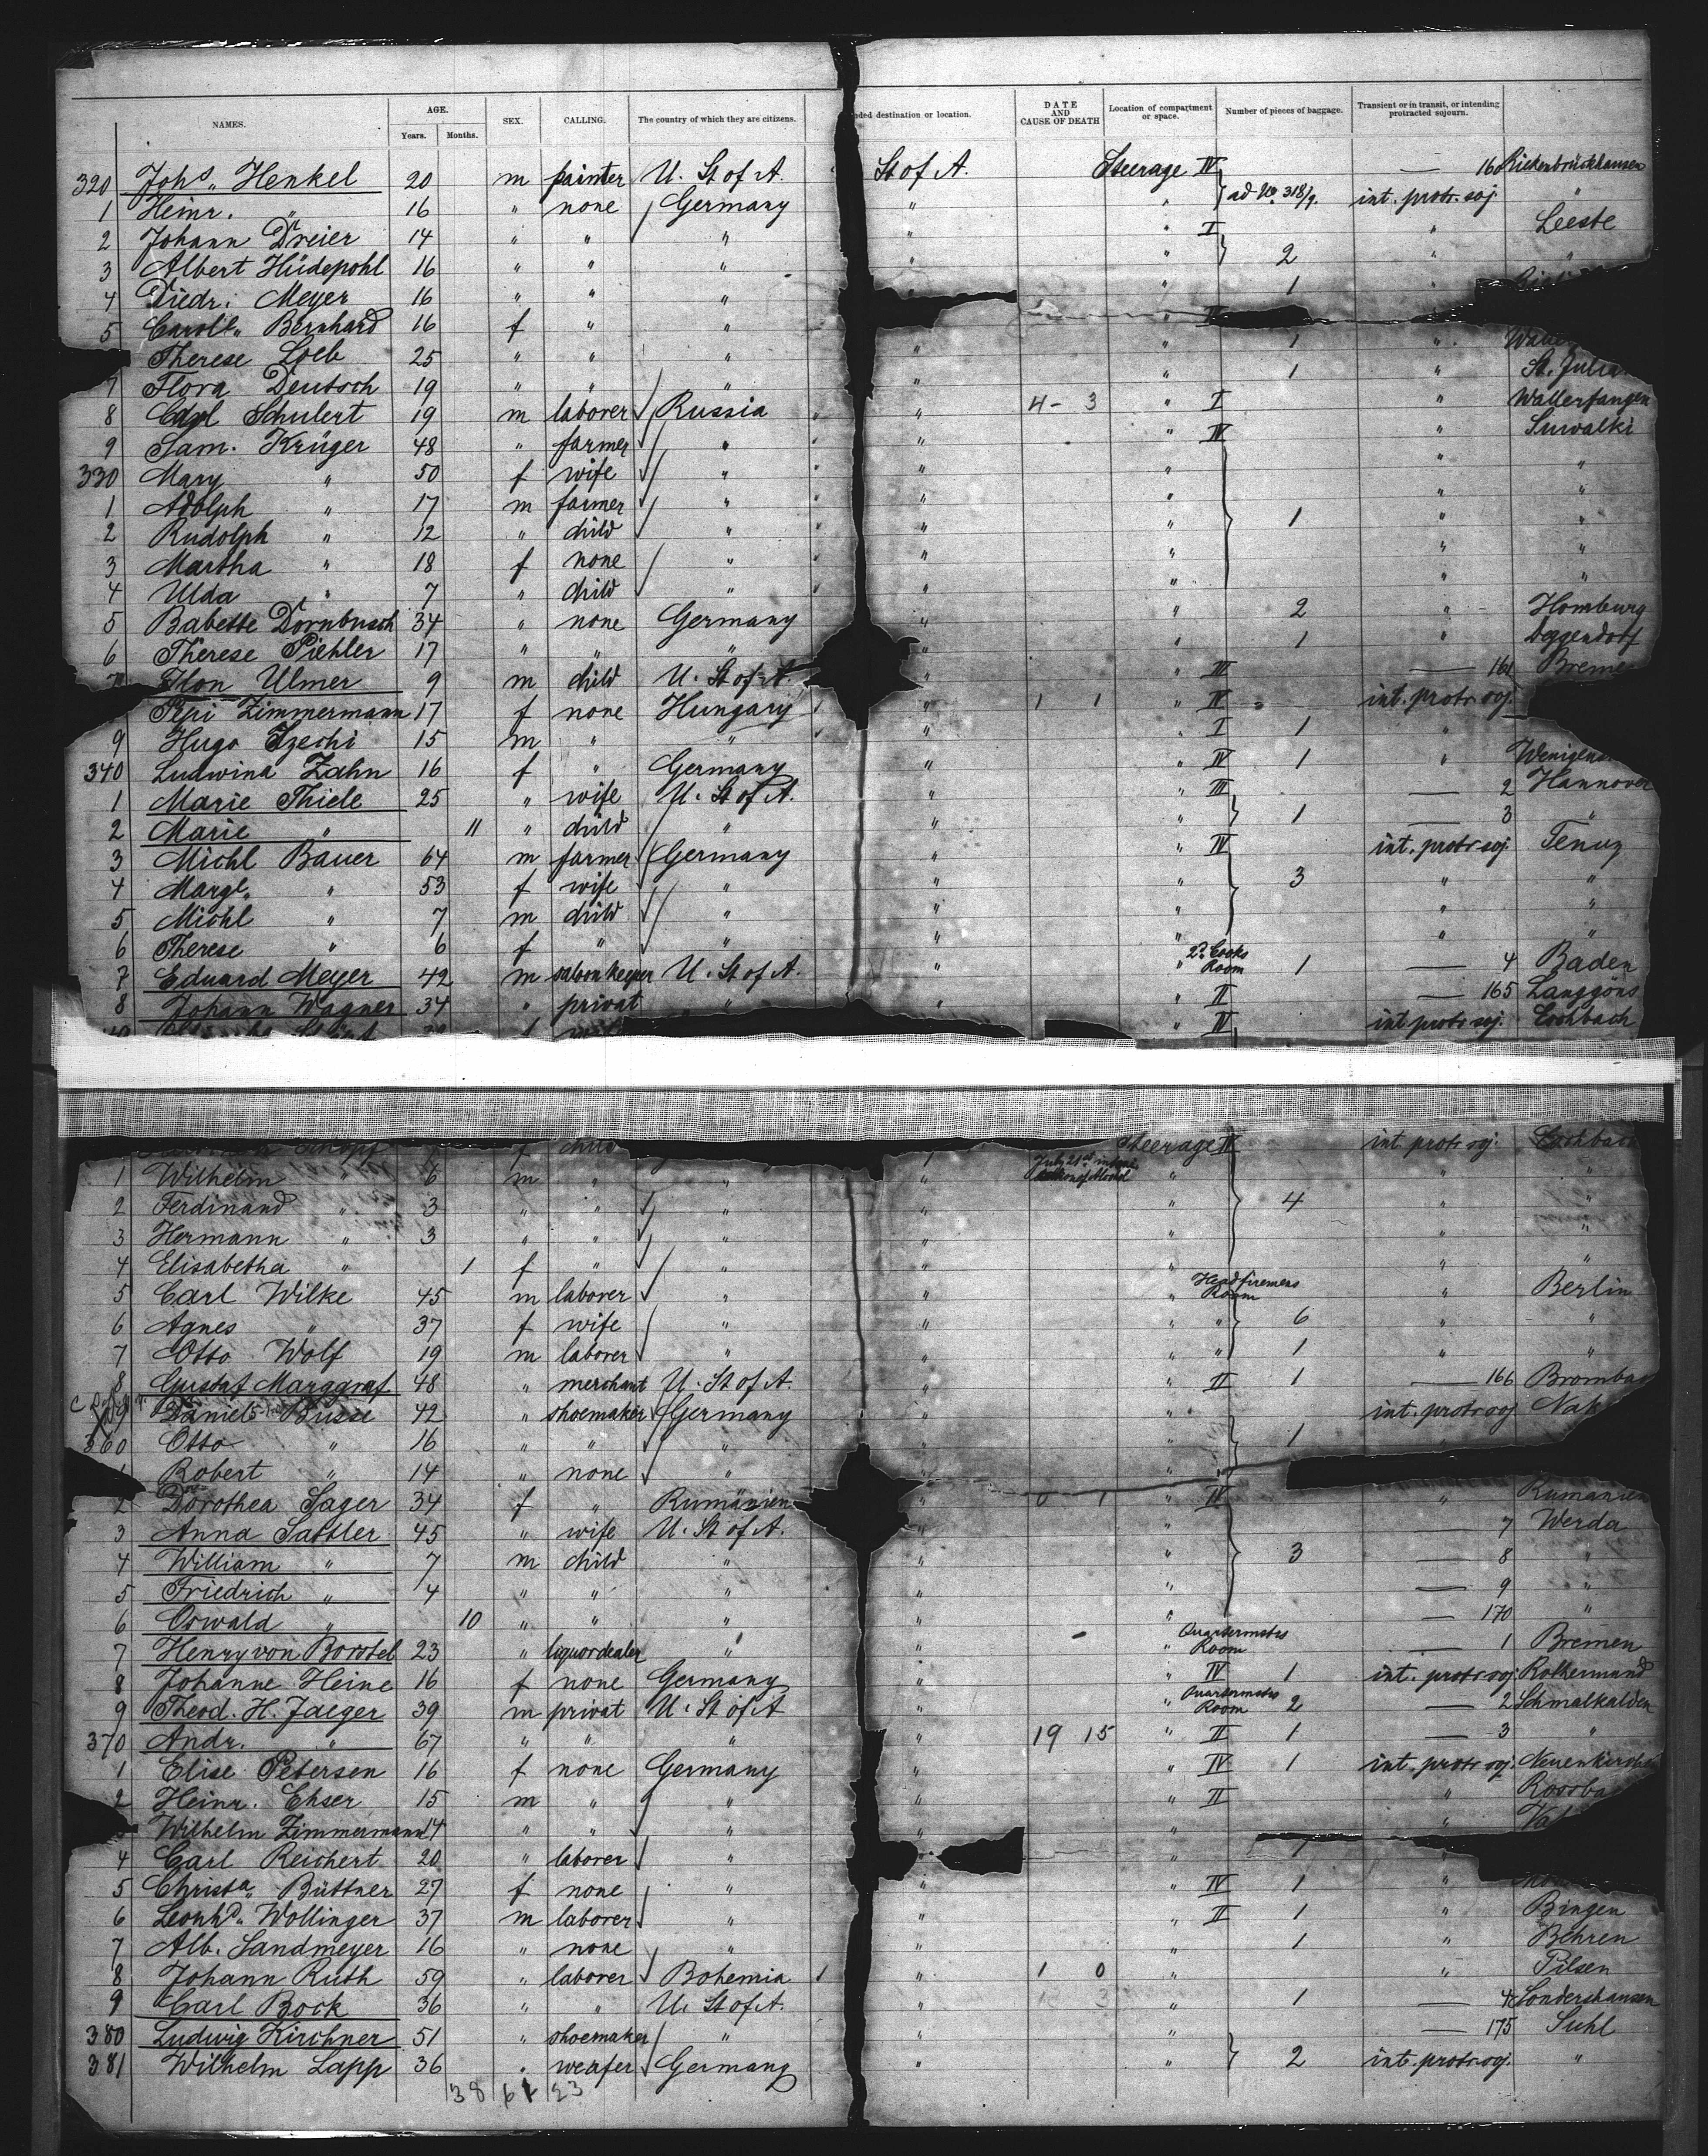 NAMES. AGE. Years. Months. SEX. CALLING. The country of which they are citizens. nded destination or location. DATE AND CAUSE OF DEATH Location of compartment or space. Number of pieces of baggage. Transient or in transit, or intending protracted sojourn.
320 Johs. Henkel 20 m painter U. St of A. St of A. Steerage IV — 160 Rickenbrückhausen
1 Heinr. " 16 " none Germany " " ad No. 318/9. int. protr. soj. "
2 Johann Dreier 14 " " " " " I " Leeste
3 Albert Hüdepohl 16 " " " " " 2 " "
4 Diedr. Meyer 16 " " " " " 1 "
5 Caroll. Bernhard 16 f " " "
Therese Loeb 25 " " " " " 1 "
7 Flora Deutsch 19 " " " " " 1 " St. Julia
8 Carl Schulert 19 m laborer Russia " " 4 - 3 " I " Wallerfangen
9 Sam. Krüger 48 " farmer " " " " IV " Suwalki
330 Mary " 50 f wife " " " " " "
1 Adolph " 17 m farmer " " " " " "
2 Rudolph " 12 " child " " " " 1 " "
3 Martha " 18 f none " " " " " "
4 Ulda " 7 " child " " " " " "
5 Babette Dornbusch 34 " none Germany " " 2 " Homburg
6 Therese Piehler 17 " " " " 1 " Deggendorf
7 Ilon Ulmer 9 m child U. St of A. " " III — 161 Breme
Pepi Zimmermann 17 f none Hungary " 1 1 " IV int. protr. soj.
9 Hugo Szechi 15 m " " " " I 1 "
340 Ludwina Zahn 16 f " Germany " " IV 1 "
1 Marie Thiele 25 " wife U. St of A. " " III — 2 Hannover
2 Marie " 11 " child " " " 1 — 3 "
3 Michl Bauer 64 m farmer Germany " " IV int. protr. soj. Tenuz
4 Margl. " 53 f wife " " " 3 " "
5 Michl " 7 m child " " " " "
6 Therese " 6 f " " " " " "
7 Eduard Meyer 42 m saloonkeeper U. St of A. " " 2d Cooks Room 1 — 4 Baden
8 Johann Wagner 34 " privat " " " II — 165 Langgöns
" IV int protr soj. Eschbach
f child Steerage IV int protr soj. Eschbach
1 Wilhelm " 6 m " " " July 21st " "
2 Ferdinand " 3 " " " " " 4 " "
3 Hermann " 3 " " " " " " "
4 Elisabetha " 1 f " " " " " "
5 Carl Wilke 45 m laborer " " " Headfiremens Room " Berlin
6 Agnes " 37 f wife " " " " 6 " "
7 Otto Wolf 19 m laborer " " " " 1 " "
8 Gustaf Marggraf 48 " merchant U. St of A. " " II 1 — 166 Bromba
9 Daniel Busse 42 " shoemaker Germany " " int. protr soj. Nak
360 Otto " 16 " " " " " 1
Robert " 14 " none " " "
2 Dorothea Sager 34 f " Rumänien " 0 1 " IV " Rumänien
3 Anna Sattler 45 " wife U. St of A. " " 7 Werda
4 William " 7 m child " " " 3 — 8 "
5 Friedrich " 4 " " " " " — 9 "
6 Oswald " 10 " " " " " — 170 "
7 Henry von Borstel 23 " liquordealer " " - " Quartermstrs Room — 1 Bremen
8 Johanne Heine 16 f none Germany " " IV 1 int. protr soj. Rothermund
9 Theod. H. Jaeger 39 m privat U. St of A " " Quartermstrs Room 2 — 2 Schmalkalden
370 Andr. " 67 " " " " 19 15 " II 1 — 3 "
1 Elise Petersen 16 f none Germany " " IV 1 int. protr soj. Neuenkirch
2 Heinr. Ehser 15 m " " " " II " Rossba
Wilhelm Zimmermann 14 " " " " " "
4 Carl Reichert 20 " laborer " " 1
5 Christa. Büttner 27 f none " " " IV 1 "
6 Leonhd. Wollinger 37 m laborer " " " II 1 " Bingen
7 Alb. Landmeyer 16 " none " " " 1 " Behren
8 Johann Ruth 59 " laborer Bohemia 1 " 1 0 " " Pilsen
9 Carl Bock 36 " " U. St of A. " " 1 — 4 Sondershausen
380 Ludwig Kirchner 51 " shoemaker " " " — 175 Suhl
381 Wilhelm Lapp 36 " weafer Germany " " 2 int. protr soj. "
38 61 23